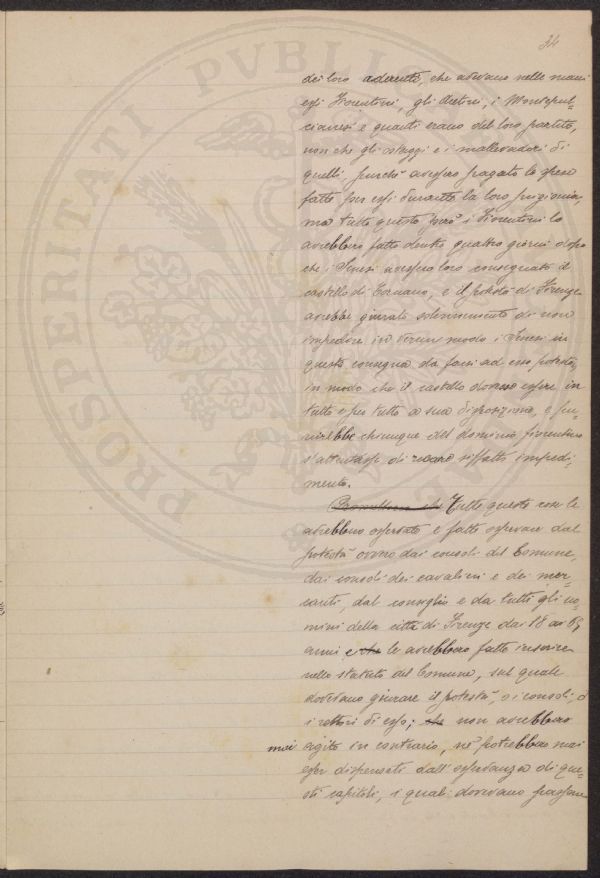 34
dei loro aderenti, che avevano nelle mani
essi Fiorentini, gli Aretini, i Montepul-
cianesi e quanti erano del loro partito,
non che gli ostaggi e i mallevadori di
quelli, purchè avessero pagato le spese
fatte per essi durante la loro prigionia,
ma tutto questo però i Fiorentini lo
avrebbero fatto dentro quattro giorni dopo
che i Senesi avessero loro consegnato il
castello di Tornano, e il potestà di Firenze
avrebbe giurato solennemente di non
impedire in verun modo i Senesi in
questa consegna da farsi ad esso potestà,
in modo che il castello dovesse essere in
tutto e per tutto a sua disposizione, e pu-
nirebbe chiunque del dominio fiorentino
s'attentasse di recare siffatto impedi-
mento.
Tutte queste cose le
avrebbero osservato e fatto osservare dal
potestà ovvero dai consoli del Comune,
dai consoli dei cavalieri e dei mer-
canti, dal consiglio e da tutti gli uo-
mini della città di Firenze dai 18 ai
anni e che le avrebbero fatte inserire
nello statuto del Comune, sul quale
dovevano giurare il potestà, o i consoli, o
i rettori di esso; che non avrebbero
mai agito in contrario, nè potrebbero mai
esser dispensati dall'osservanza di que-
sti capitoli, i quali dovevano
PROSPERITATI PVBLICAE